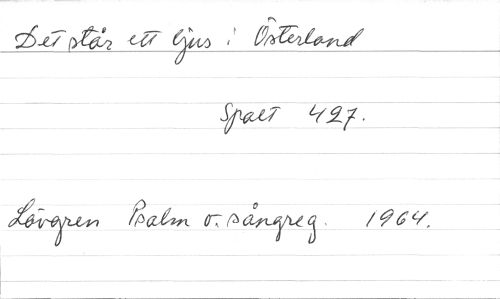 Det står ett ljus i Österland
Spalt 427.
Lövgren Psalm o. sångreg. 1964.